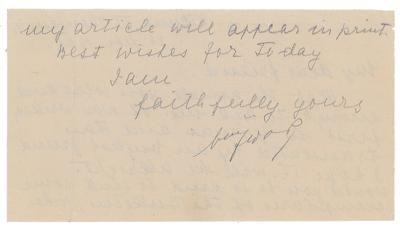 my article will appear in print.
Best wishes for Today
I am
faithfully yours